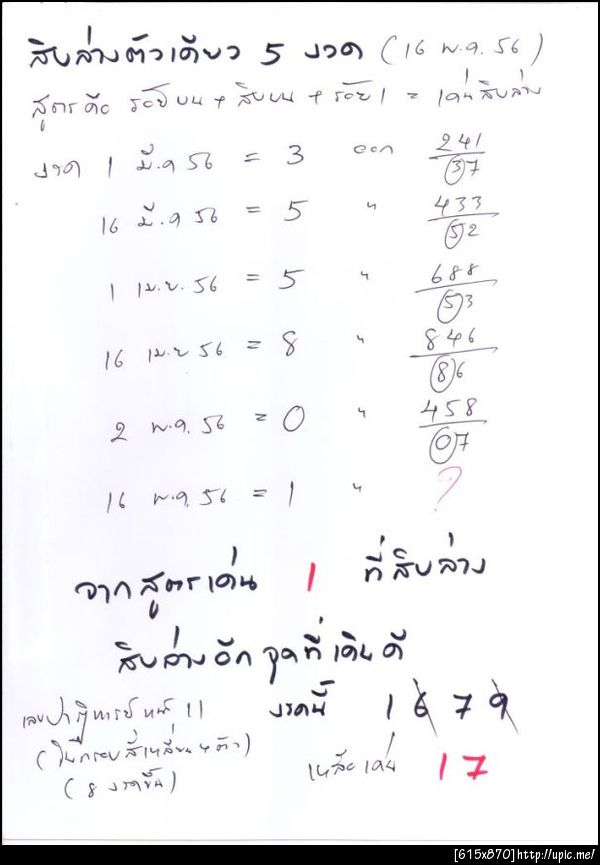 สิบล่างตัวเดียว 5 งวด (16 พ.ค. 56)
สูตรคือ ร้อยบน + สิบบน + ร้อย 1 = เด่นสิบล่าง
งวด 1 มี.ค 56 = 3 ออก 241
37
16 มี.ค 56 = 5 " 433
52
1 เม.ย. 56 = 5 " 688
53
16 เม.ย 56 = 8 " 846
86
2 พ.ค. 56 = 0 " 458
07
16 พ.ค. 56 = 1 " ?
จากสูตรเด่น 1 ที่สิบล่าง
สิบล่างอีกจุดที่เดินดี
เลขปาฏิหารย์ หน้า 11 งวดนี้ 1 6 7 9
(ในกรอบสี่เหลี่ยม 4 ตัว)
(8 งวดขึ้น) เหลือเด่น 17
[615x870]http://upic.me/